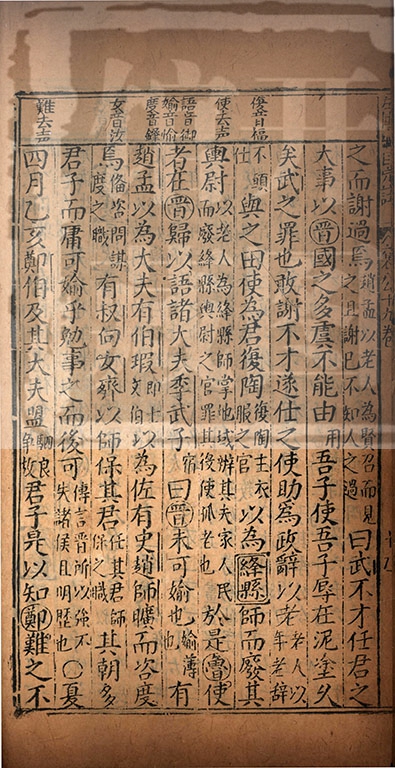 之而謝過焉趙孟以老人為賢召而見之且謝已不知人之過曰武不才任君之
大事以晉國之多虞不能由用吾子使吾子辱在泥塗久
矣武之罪也敢謝不才遂仕之使助為政辭以老老人以年老辭
復音福
不願仕與之田使為君復陶復陶主衣服之官以為絳縣師而廢其
使去声
輿尉以老人為絳縣師掌地域辨其夫家人民而廢絳縣輿尉之官罪其役使孤老也於是魯使
語音御
媮音偷
度音鐸
者在晉歸以語諸大夫季武子宿曰晉未可媮也媮薄也有
趙孟以為大夫有伯瑕即士文伯以為佐有史趙師曠而咨度
女音汝
焉備咨問謀度之職有叔向女齊以師保其君任其君師保之職其朝多
君子而庸可媮乎勉事之而後可傳言晉所以強不失諸侯且明歷也○夏
難去声
四月乙亥鄭伯及其大夫盟駟良争故君子是以知鄭難之不